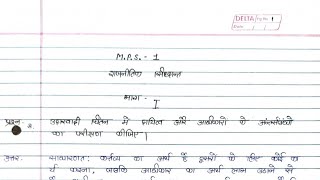 DELTA Pg No. 1
M.P.S. - 1
राजनीतिक सिद्धान्त
भाग - I
प्रश्न 2. उदारवादी चिंतन में दायित्व और अधिकारों के अंतर्सम्बंधों
का परीक्षण कीजिए।
उत्तर. साधारणतः कर्तव्य का अर्थ है दूसरों के लिए कोई का
र्य करना, जबकि अधिकार का अर्थ लाभ उठाने से